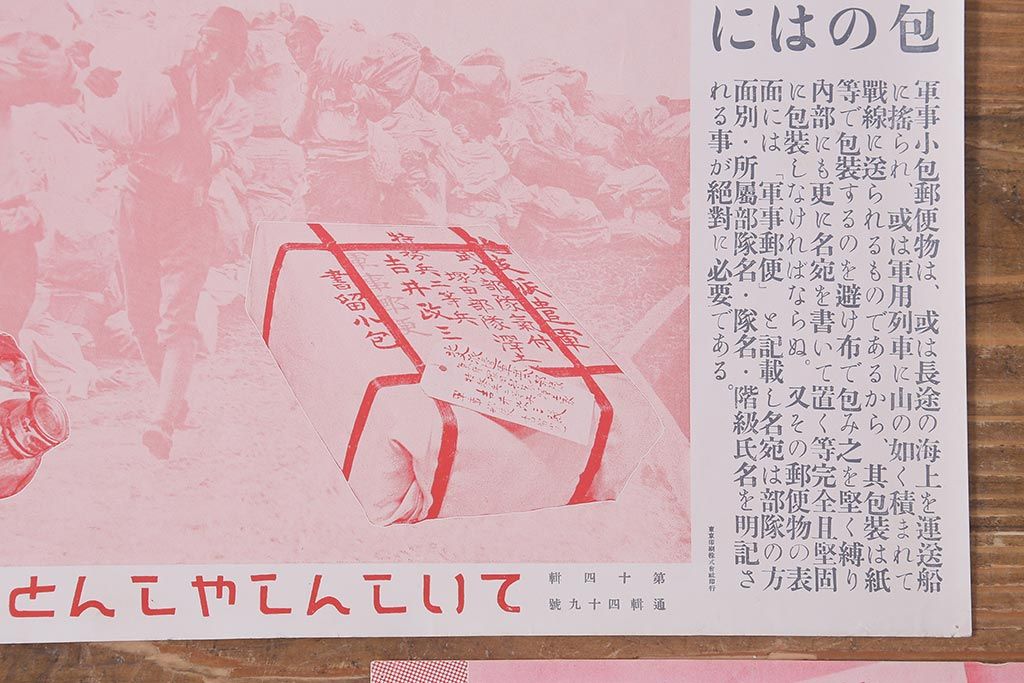 包のはに
軍事小包郵便物は、或は長途の海上を運送船
に搖られ、或は軍用列車に山の如く積まれて
戰線に送られるものであるから、其包裝は紙
等で包裝するのを避け布で包み之を堅く縛り
內部にも更に名宛を書いて置く等完全且堅固
に包裝しなければならぬ。又その郵便物の表
面には「軍事郵便」と記載し名宛は部隊の方
面別・所屬部隊名・隊名・階級氏名を明記さ
れる事が絕對に必要である。
東京印刷株式會社印行
派遣軍
部隊氣付
特務兵二等兵
吉井改三
軍事郵便
書留小包
第十四輯
通輯四十九號
ていこんこやこんと